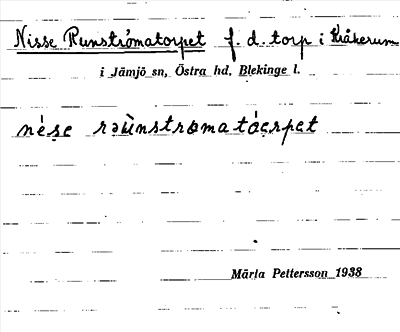 Nisse Runströmatorpet f. d. torp i Kråkerum
i Jämjö sn, Östra hd, Blekinge l.
né̩se rəùnstromató̩ɛrpɛt
Märta Pettersson 1938